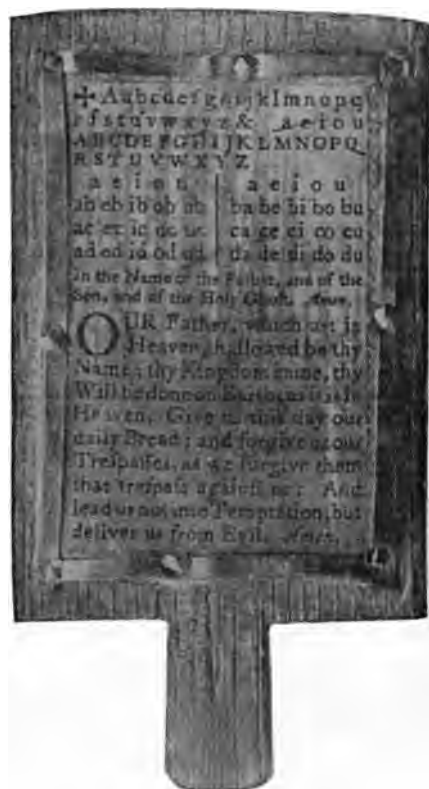 ✠ A a b c d e f g h i j k l m n o p q
r ſ s t u v w x y z & a e i o u
A B C D E F G H I J K L M N O P Q
R S T U V W X Y Z
a e i o u a e i o u
ab eb ib ob ub ba be bi bo bu
ac ec ic oc uc ca ce ci co cu
ad ed id od ud da de di do du
In the Name of the Father, and of the
Son, and of the Holy Ghoſt. Amen.
OUR Father, which art in
Heaven, hallowed be thy
Name; thy Kingdom come, thy
Will be done on Earth, as it is in
Heaven. Give us this day our
daily Bread; and forgive us our
Treſpaſſes, as we forgive them
that treſpaſs againſt us: And
lead us not into Temptation, but
deliver us from Evil. Amen.